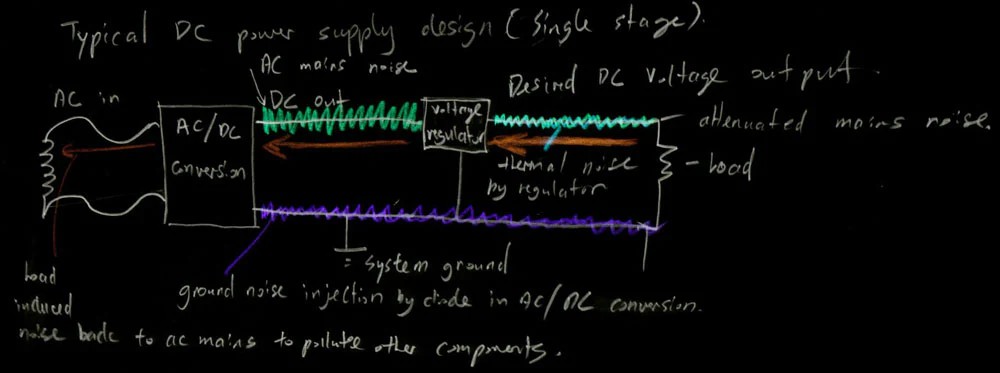 Typical DC power supply design (Single stage).
AC mains noise
Desired DC Voltage output.
AC in
DC out
attenuated mains noise.
AC/DC
conversion
voltage
regulator
thermal noise
by regulator
- Load
= system ground
ground noise injection by diode in AC/DC conversion.
Load
induced
noise back to ac mains to pollute other components.